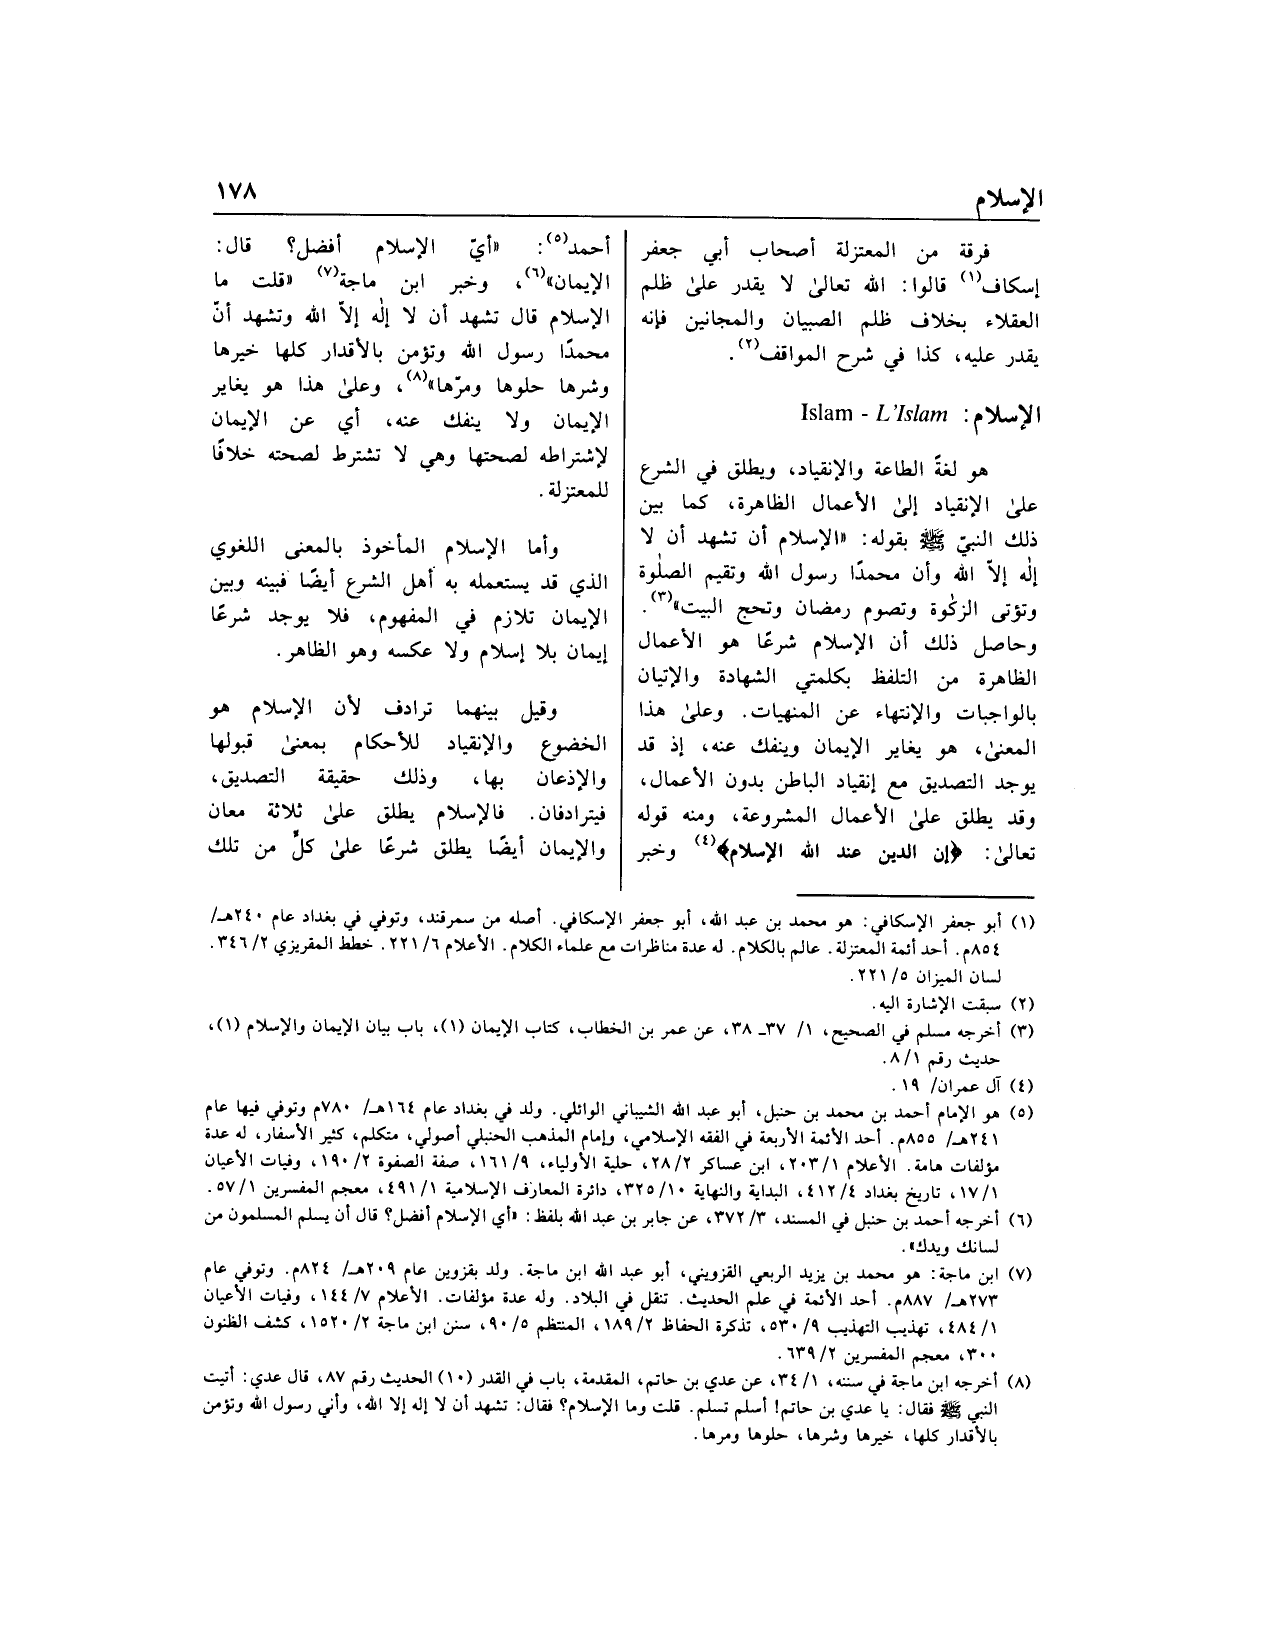 الإسلام
١٧٨
فرقة من المعتزلة أصحاب أبي جعفر
إسكاف(١) قالوا: الله تعالىٰ لا يقدر علىٰ ظلم
العقلاء بخلاف ظلم الصبيان والمجانين فإنه
يقدر عليه، كذا في شرح المواقف(٢).
الإسلام: Islam - L'Islam
هو لغةً الطاعة والإنقياد، ويطلق في الشرع
علىٰ الإنقياد إلىٰ الأعمال الظاهرة، كما بين
ذلك النبيّ ﷺ بقوله: «الإسلام أن تشهد أن لا
إلٰه إلاّ الله وأن محمدًا رسول الله وتقيم الصلٰوة
وتؤتى الزكٰوة وتصوم رمضان وتحج البيت»(٣).
وحاصل ذلك أن الإسلام شرعًا هو الأعمال
الظاهرة من التلفظ بكلمتي الشهادة والإتيان
بالواجبات والإنتهاء عن المنهيات. وعلىٰ هذا
المعنىٰ، هو يغاير الإيمان وينفك عنه، إذ قد
يوجد التصديق مع إنقياد الباطن بدون الأعمال،
وقد يطلق علىٰ الأعمال المشروعة، ومنه قوله
تعالىٰ: ﴿إن الدين عند الله الإسلام﴾(٤) وخبر
أحمد(٥): «أيّ الإسلام أفضل؟ قال:
الإيمان»(٦)، وخبر ابن ماجة(٧) «قلت ما
الإسلام قال تشهد أن لا إلٰه إلاّ الله وتشهد أنّ
محمدًا رسول الله وتؤمن بالأقدار كلها خيرها
وشرها حلوها ومرّها»(٨)، وعلىٰ هذا هو يغاير
الإيمان ولا ينفك عنه، أي عن الإيمان
لإشتراطه لصحتها وهي لا تشترط لصحته خلافًا
للمعتزلة.
وأما الإسلام المأخوذ بالمعنى اللغوي
الذي قد يستعمله به أهل الشرع أيضًا فبينه وبين
الإيمان تلازم في المفهوم، فلا يوجد شرعًا
إيمان بلا إسلام ولا عكسه وهو الظاهر.
وقيل بينهما ترادف لأن الإسلام هو
الخضوع والإنقياد للأحكام بمعنىٰ قبولها
والإذعان بها، وذلك حقيقة التصديق،
فيترادفان. فالإسلام يطلق علىٰ ثلاثة معان
والإيمان أيضًا يطلق شرعًا علىٰ كلٍّ من تلك
(١) أبو جعفر الإسكافي: هو محمد بن عبد الله، أبو جعفر الإسكافي. أصله من سمرقند، وتوفي في بغداد عام ٢٤٠هـ/
٨٥٤م. أحد أئمة المعتزلة. عالم بالكلام. له عدة مناظرات مع علماء الكلام. الأعلام ٦/ ٢٢١. خطط المقريزي ٢/ ٣٤٦.
لسان الميزان ٥/ ٢٢١.
(٢) سبقت الإشارة اليه.
(٣) أخرجه مسلم في الصحيح، ١/ ٣٧ـ ٣٨، عن عمر بن الخطاب، كتاب الإيمان (١)، باب بيان الإيمان والإسلام (١)،
حديث رقم ٨/١.
(٤) آل عمران/ ١٩.
(٥) هو الإمام أحمد بن محمد بن حنبل، أبو عبد الله الشيباني الوائلي. ولد في بغداد عام ١٦٤هـ/ ٧٨٠م وتوفي فيها عام
٢٤١هـ/ ٨٥٥م. أحد الأئمة الأربعة في الفقه الإسلامي، وإمام المذهب الحنبلي أصولي، متكلم، كثير الأسفار، له عدة
مؤلفات هامة. الأعلام ٢٠٣/١، ابن عساكر ٢٨/٢، حلية الأولياء، ١٦١/٩، صفة الصفوة ١٩٠/٢، وفيات الأعيان
١٧/١، تاريخ بغداد ٤١٢/٤، البداية والنهاية ٣٢٥/١٠، دائرة المعارف الإسلامية ٤٩١/١، معجم المفسرين ٥٧/١.
(٦) أخرجه أحمد بن حنبل في المسند، ٣/ ٣٧٢، عن جابر بن عبد الله بلفظ: «أي الإسلام أفضل؟ قال أن يسلم المسلمون من
لسانك ويدك».
(٧) ابن ماجة: هو محمد بن يزيد الربعي القزويني، أبو عبد الله ابن ماجة. ولد بقزوين عام ٢٠٩هـ/ ٨٢٤م. وتوفي عام
٢٧٣هـ/ ٨٨٧م. أحد الأئمة في علم الحديث. تنقل في البلاد. وله عدة مؤلفات. الأعلام ٧/ ١٤٤، وفيات الأعيان
٤٨٤/١، تهذيب التهذيب ٥٣٠/٩، تذكرة الحفاظ ١٨٩/٢، المنتظم ٩٠/٥، سنن ابن ماجة ١٥٢٠/٢، كشف الظنون
٣٠٠، معجم المفسرين ٢/ ٦٣٩.
(٨) أخرجه ابن ماجة في سننه، ١/ ٣٤، عن عدي بن حاتم، المقدمة، باب في القدر (١٠) الحديث رقم ٨٧، قال عدي: أتيت
النبي ﷺ فقال: يا عدي بن حاتم! أسلم تسلم. قلت وما الإسلام؟ فقال: تشهد أن لا إله إلا الله، وأني رسول الله وتؤمن
بالأقدار كلها، خيرها وشرها، حلوها ومرها.